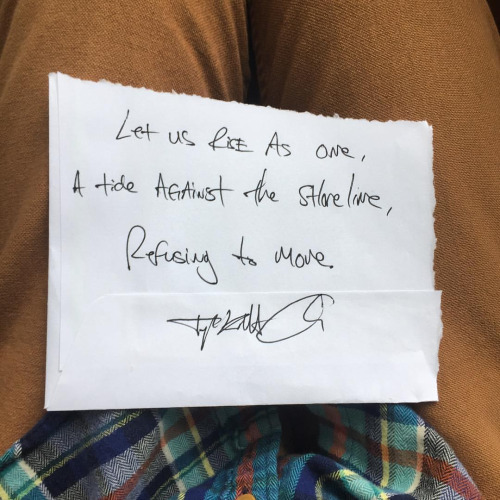 Let us RISE As one,
A tide AGAINST the shoreline,
Refusing to move.